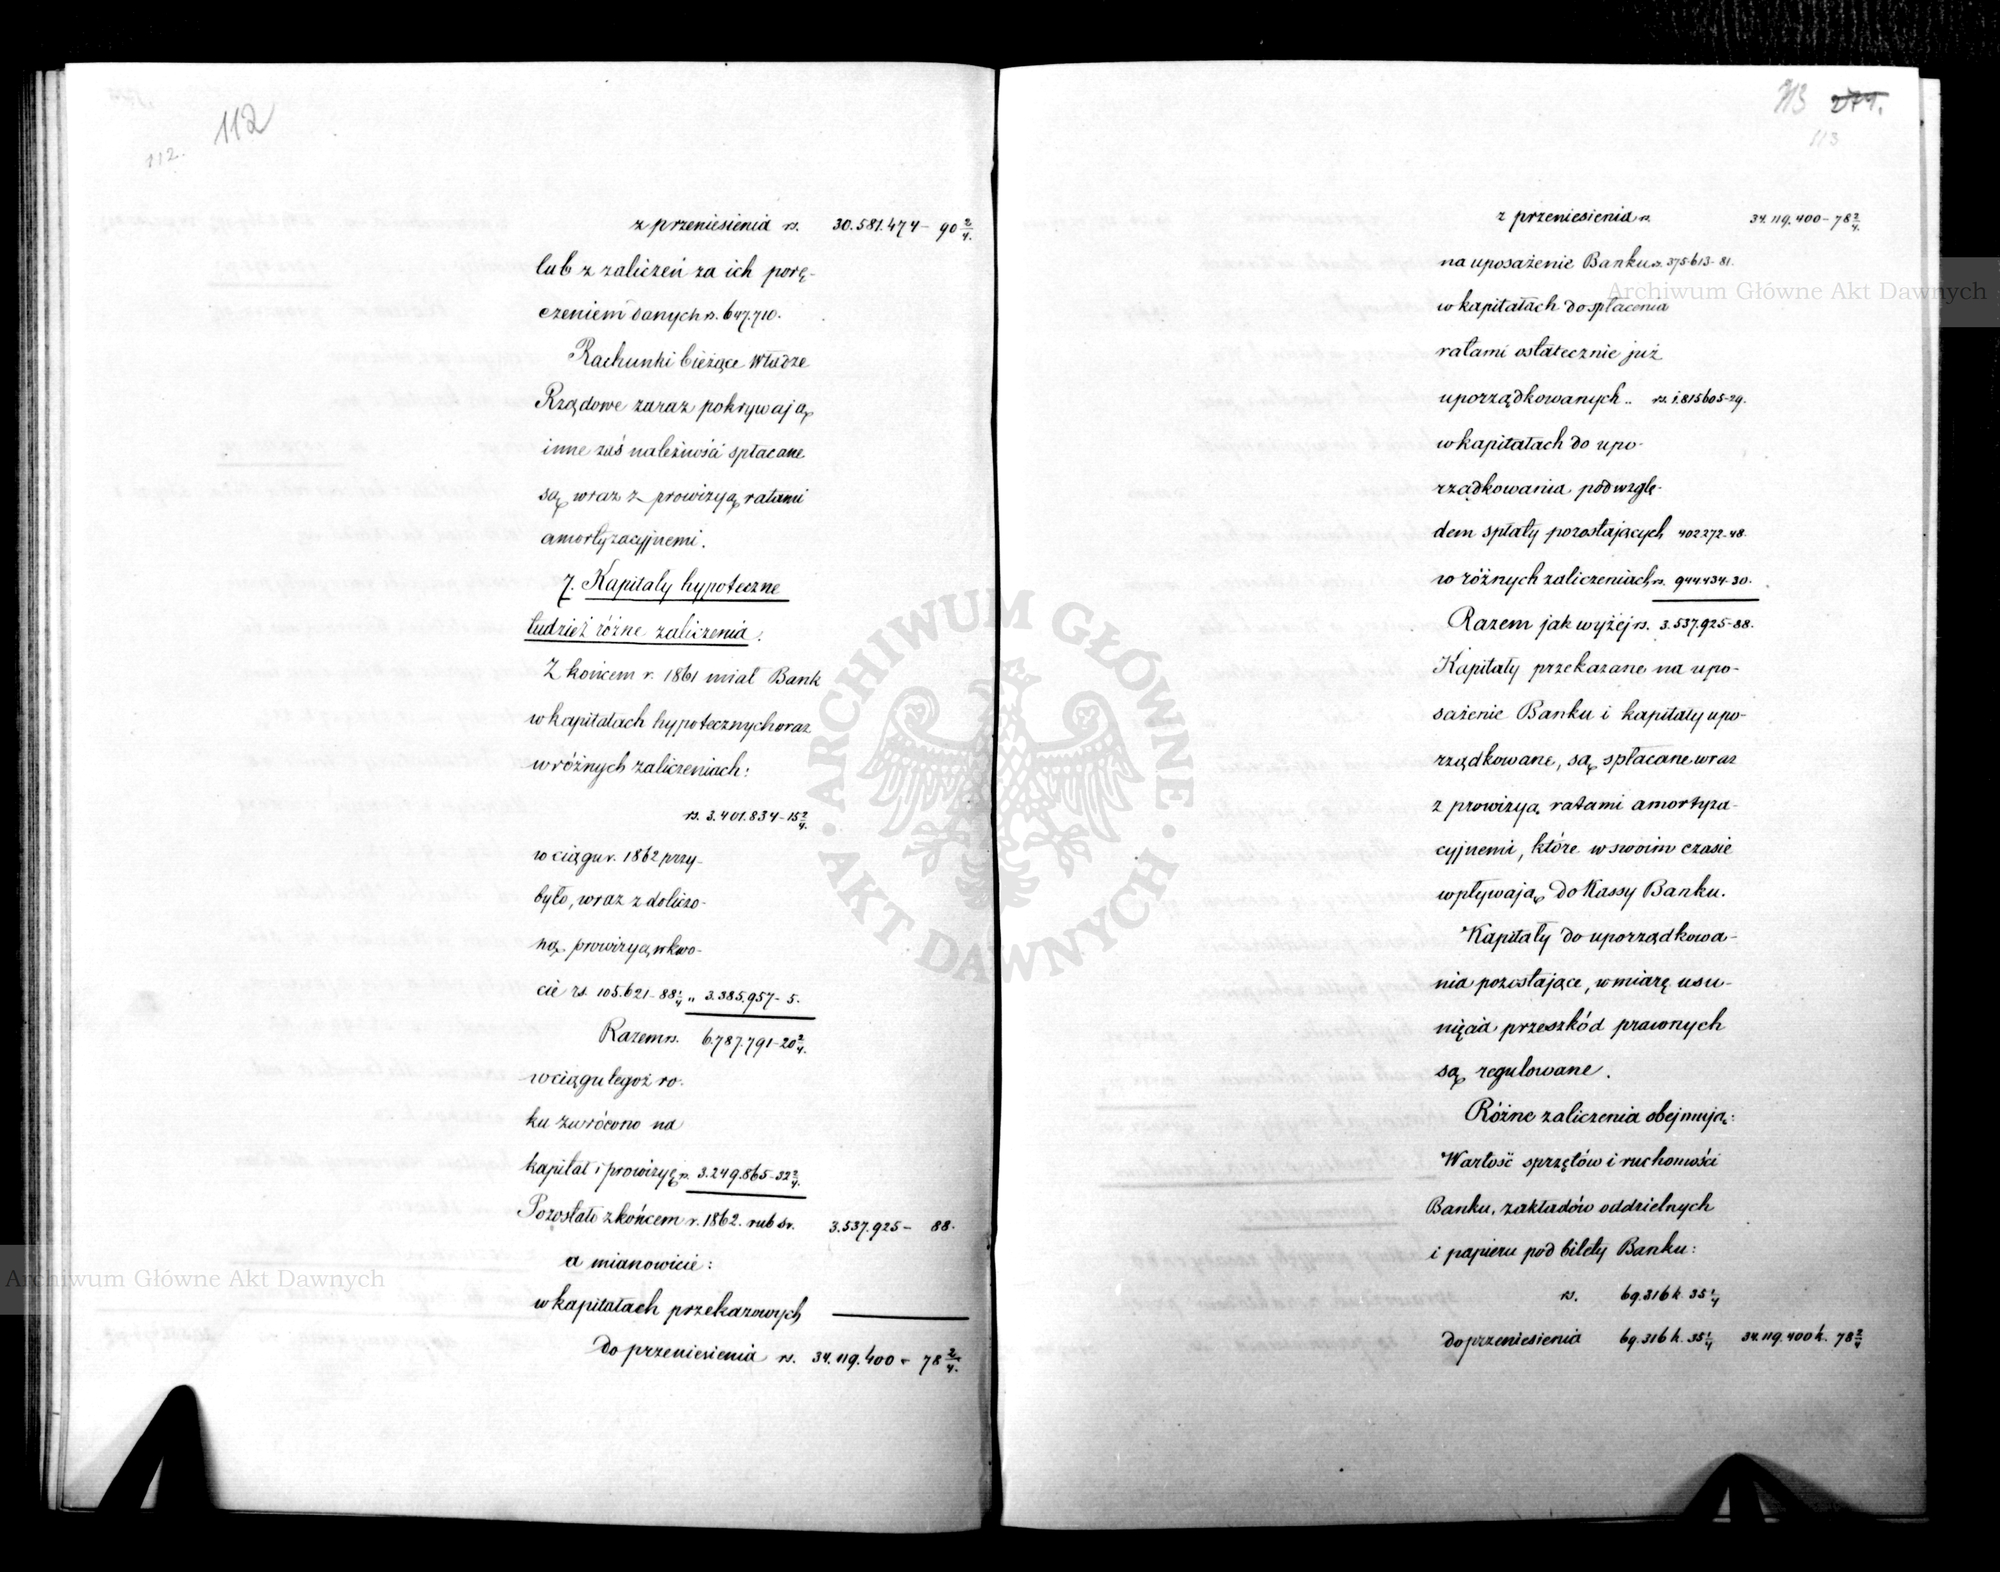 112
112.
z przeniesienia rs. 30.581.474 - 90 2/4.
lub z zaliczeń za ich porę-
czeniem danych rs. 647.710.
Rachunki bieżące Władze
Rządowe zaraz pokrywają
inne zaś należności spłacane
są wraz z prowizyą ratami
amortyzacyjnemi.
7. Kapitały hypoteczne
tudzież różne zaliczenia.
Z końcem r. 1861 miał Bank
w kapitałach hypotecznych oraz
w różnych zaliczeniach:
rs. 3.401.834 - 15 2/4.
w ciągu r. 1862 przy-
było, wraz z doliczo-
ną prowizyą w kwo-
cie rs. 105.621 - 88 1/4 „ 3.385.957 - 5.
Razem rs. 6.787.791 - 20 2/4.
w ciągu tegoż ro-
ku zwrócono na
kapitał i prowizyę rs. 3.249.865 - 32 2/4.
Pozostało z końcem r. 1862. rub sr. 3.537.925 - 88.
a mianowicie:
w kapitałach przekazowych
Do przeniesienia rs. 34.119.400 - 78 2/4.
113 271.
113
z przeniesienia rs. 34.119.400 - 78 2/4.
na uposażenie Banku rs. 375.613 - 81.
w kapitałach do spłacenia
ratami ostatecznie już
uporządkowanych .. rs. 1.815605 - 29.
w kapitałach do upo-
rządkowania pod wzglę-
dem spłaty pozostających 402272 - 48.
w różnych zaliczeniach rs. 944434 - 30.
Razem jak wyżej rs. 3.537.925 - 88.
Kapitały przekazane na upo-
sażenie Banku i kapitały upo-
rządkowane, są spłacane wraz
z prowizyą ratami amortyza-
cyjnemi, które w swoim czasie
wpływają do Kassy Banku.
Kapitały do uporządkowa-
nia pozostające, w miarę usu-
nięcia przeszkód prawnych
są regulowane.
Różne zaliczenia obejmują:
Wartość sprzętów i ruchomości
Banku, zakładów oddzielnych
i papieru pod bilety Banku:
rs. 69.316 k. 35 1/4
do przeniesienia 69.316 k. 35 1/4 34.119.400 k. 78 2/4
Archiwum Główne Akt Dawnych
ARCHIWUM GŁÓWNE · AKT DAWNYCH ·
Archiwum Główne Akt Dawnych